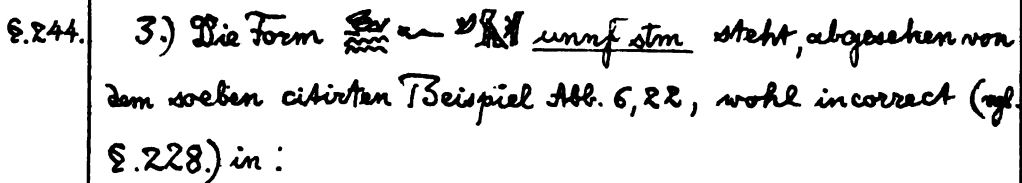 §.244. 3.) Die Form unnf stm steht, abgesehen von
dem soeben citirten Beispiel Abb. 6,22, wohl incorrect (vgl.
§.228.) in :